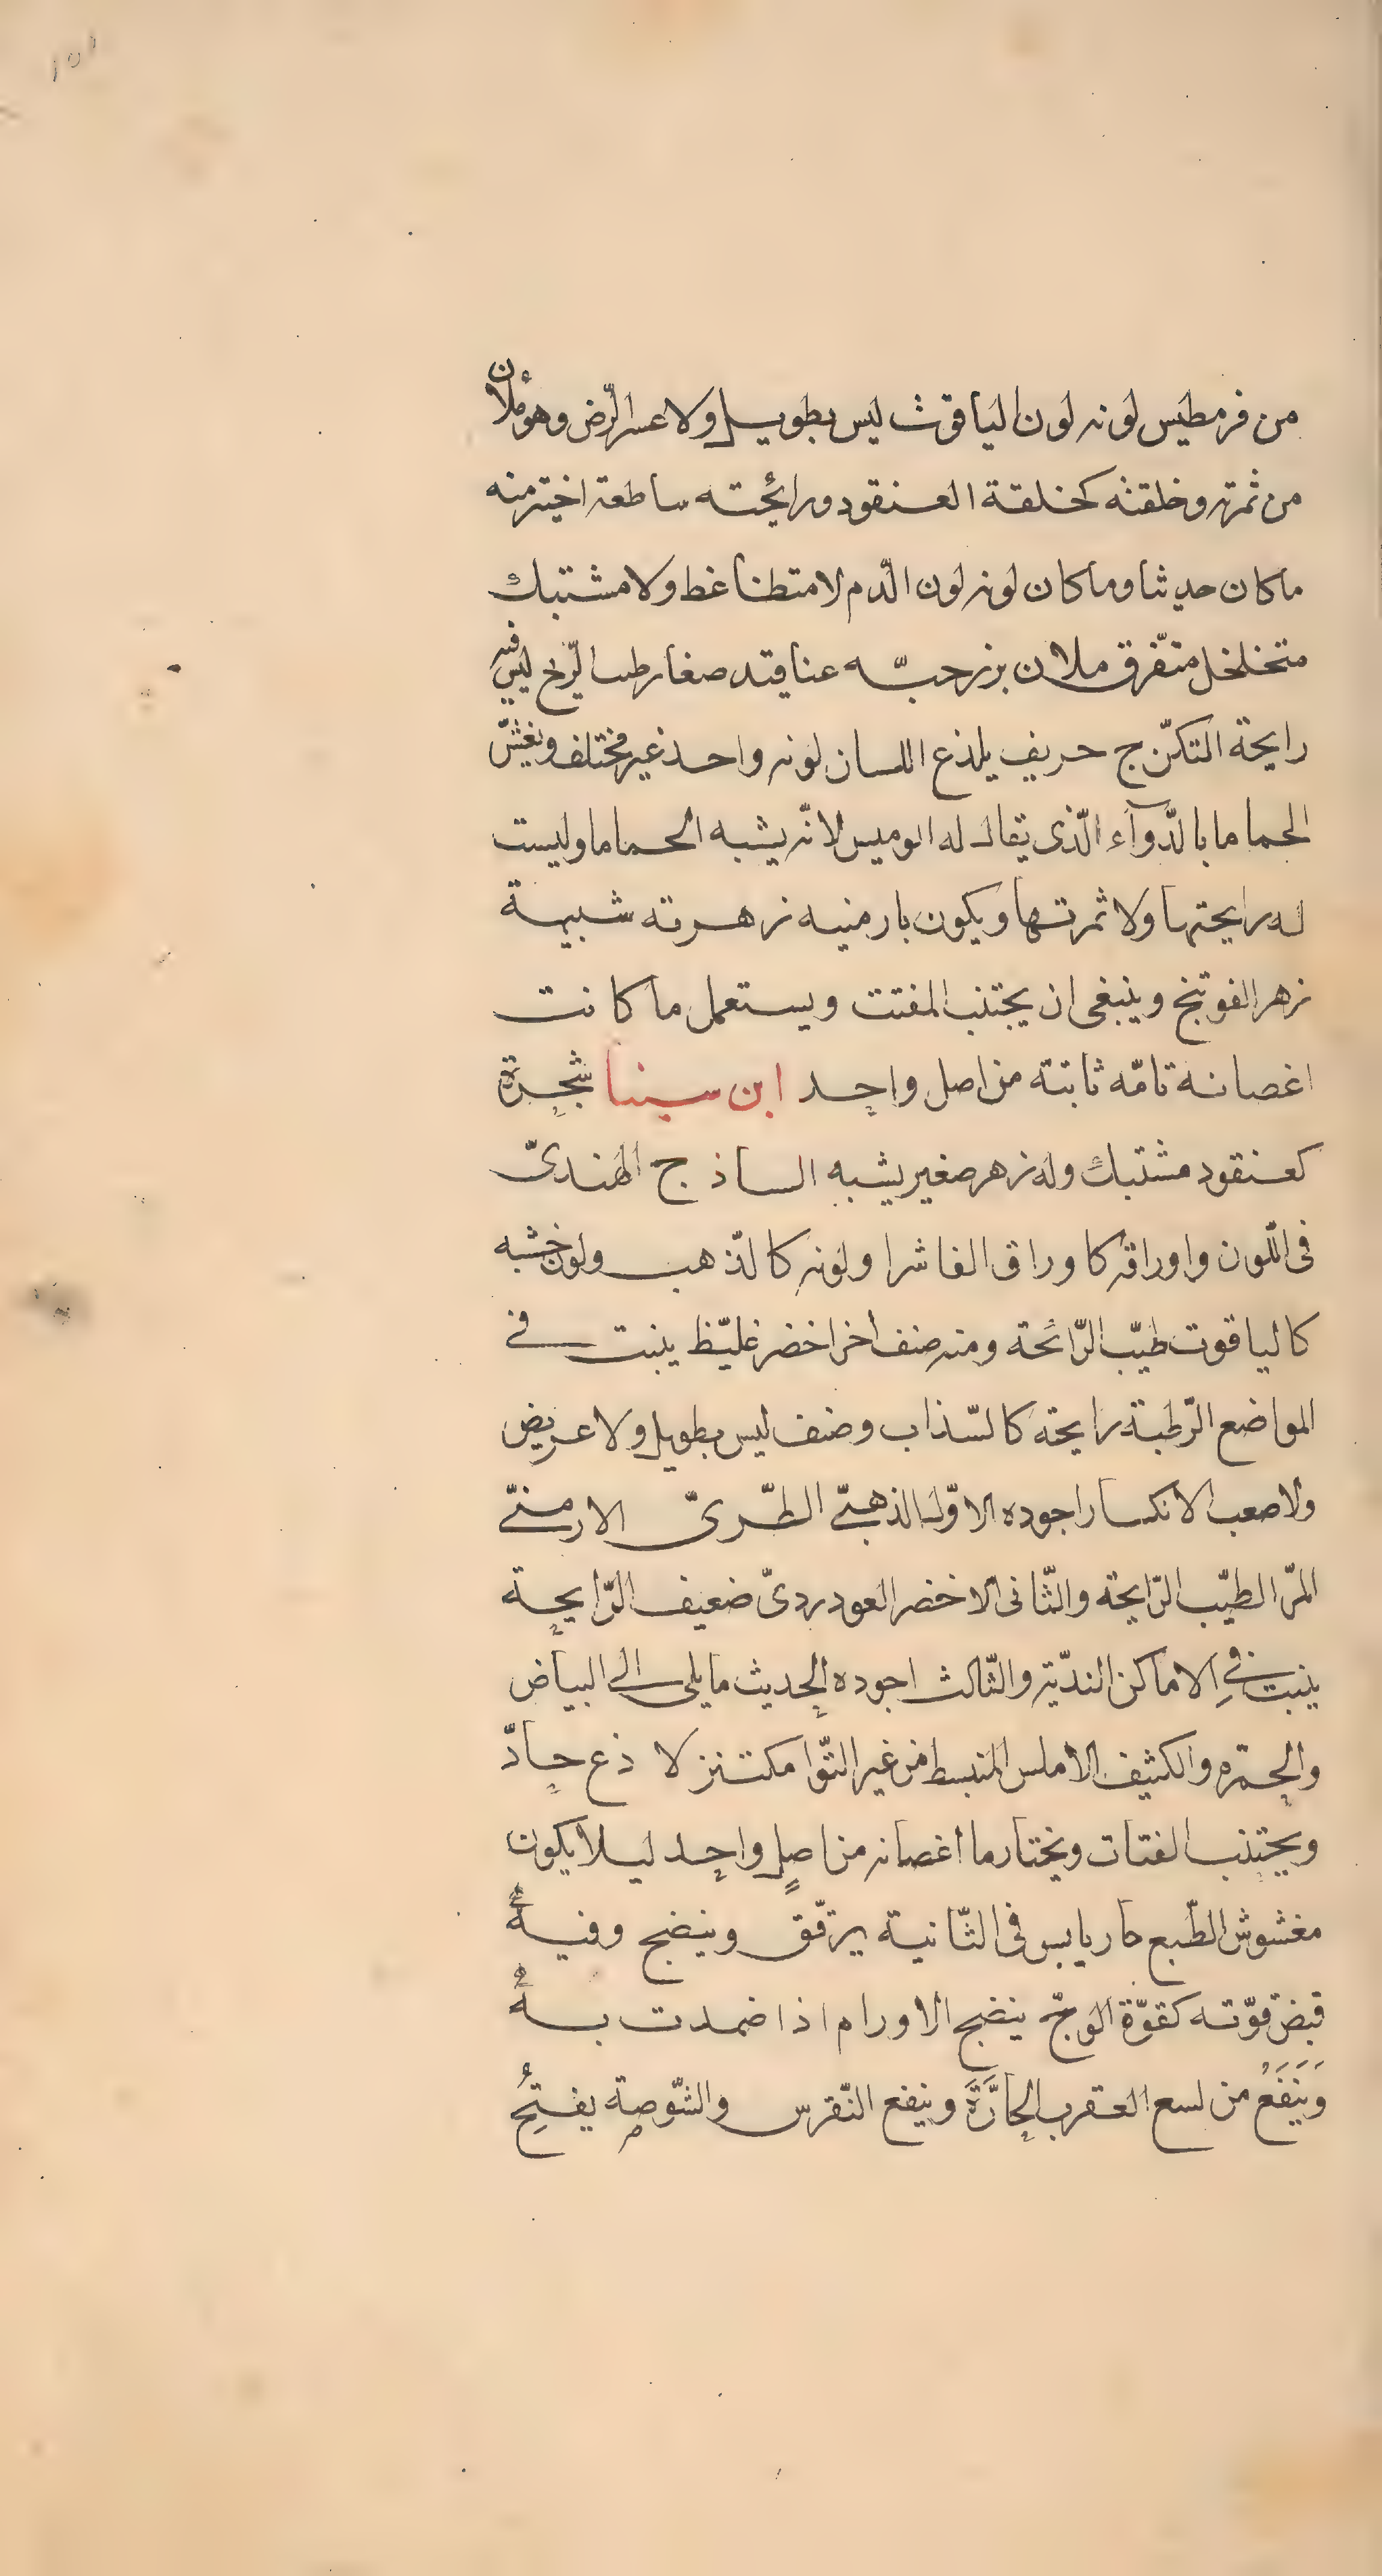 ١٥١
من فرمطيس لونه لون الياقوث ليس بطويل ولا عسر الرّض وهو ملأن
من ثمرته وخلقته كخلقة العنقود ورائحته ساطعة اختر منه
ما كان حديثا وما كان لونه لون الدّم لا متطناغط ولا مشتبك
متخلخل متفّرق ملان بزر حبّه عناقيد صغار طيب الرّيح ليس فيه
رايحة التكرّج حريف يلذع اللسان لونه واحد غير مختلف ويغشّ
الحماما بالدّوآء الّذى يقال له اموميس لانّه يشبه الحماما وليست
له رايحتها ولا ثمرتها ويكون بارمنيه زهرته شبيهة
زهر الفوتنج وينبغى ان يجتنب المفتت ويستعمل ما كانت
اغصانه تامّه ثابتة من اصل واحد ابن سينا شجرة
كعنقود مشتبك وله زهر صغير يشبه الساذج الهندىّ
فى اللّون واوراقه كاوراق الفاشرا ولونه كالذهب ولون خشبه
كالياقوت طيّب الرّائحة ومنه صنف اخر اخضر غليّظ ينبت فى
المواضع الرّطبة رايحته كالسّذاب وصنف ليس بطويل ولا عريض
ولا صعب الانكسار اجوده الاوّل الذهبىّ الطّرىّ الارمنىّ
المرّ الطيّب الرّايحة والثّانى الاخضر العود ردىّ ضعيف الرّايحة
ينبت فى الاماكن النديّة والثّالث اجوده الحديث ما يلى الى البياض
والحمّره والكثيف الاملس المنبسط من غير التوّا مكتنز لاذع حادّ
ويجتنب الفتات ويختار ما اغصانه من اصل واحد ليلا يكون
مغشوش الطّبع حار يابس فى الثّانية يرقّق وينضج وفيه
قبض قوّته كقوّة الوجّ ينضج الاورام اذا ضمدت به
وَيَنفَعُ من لسع العقرب الحارَّة وينفع النّقرس والشّوصة يفتحُ